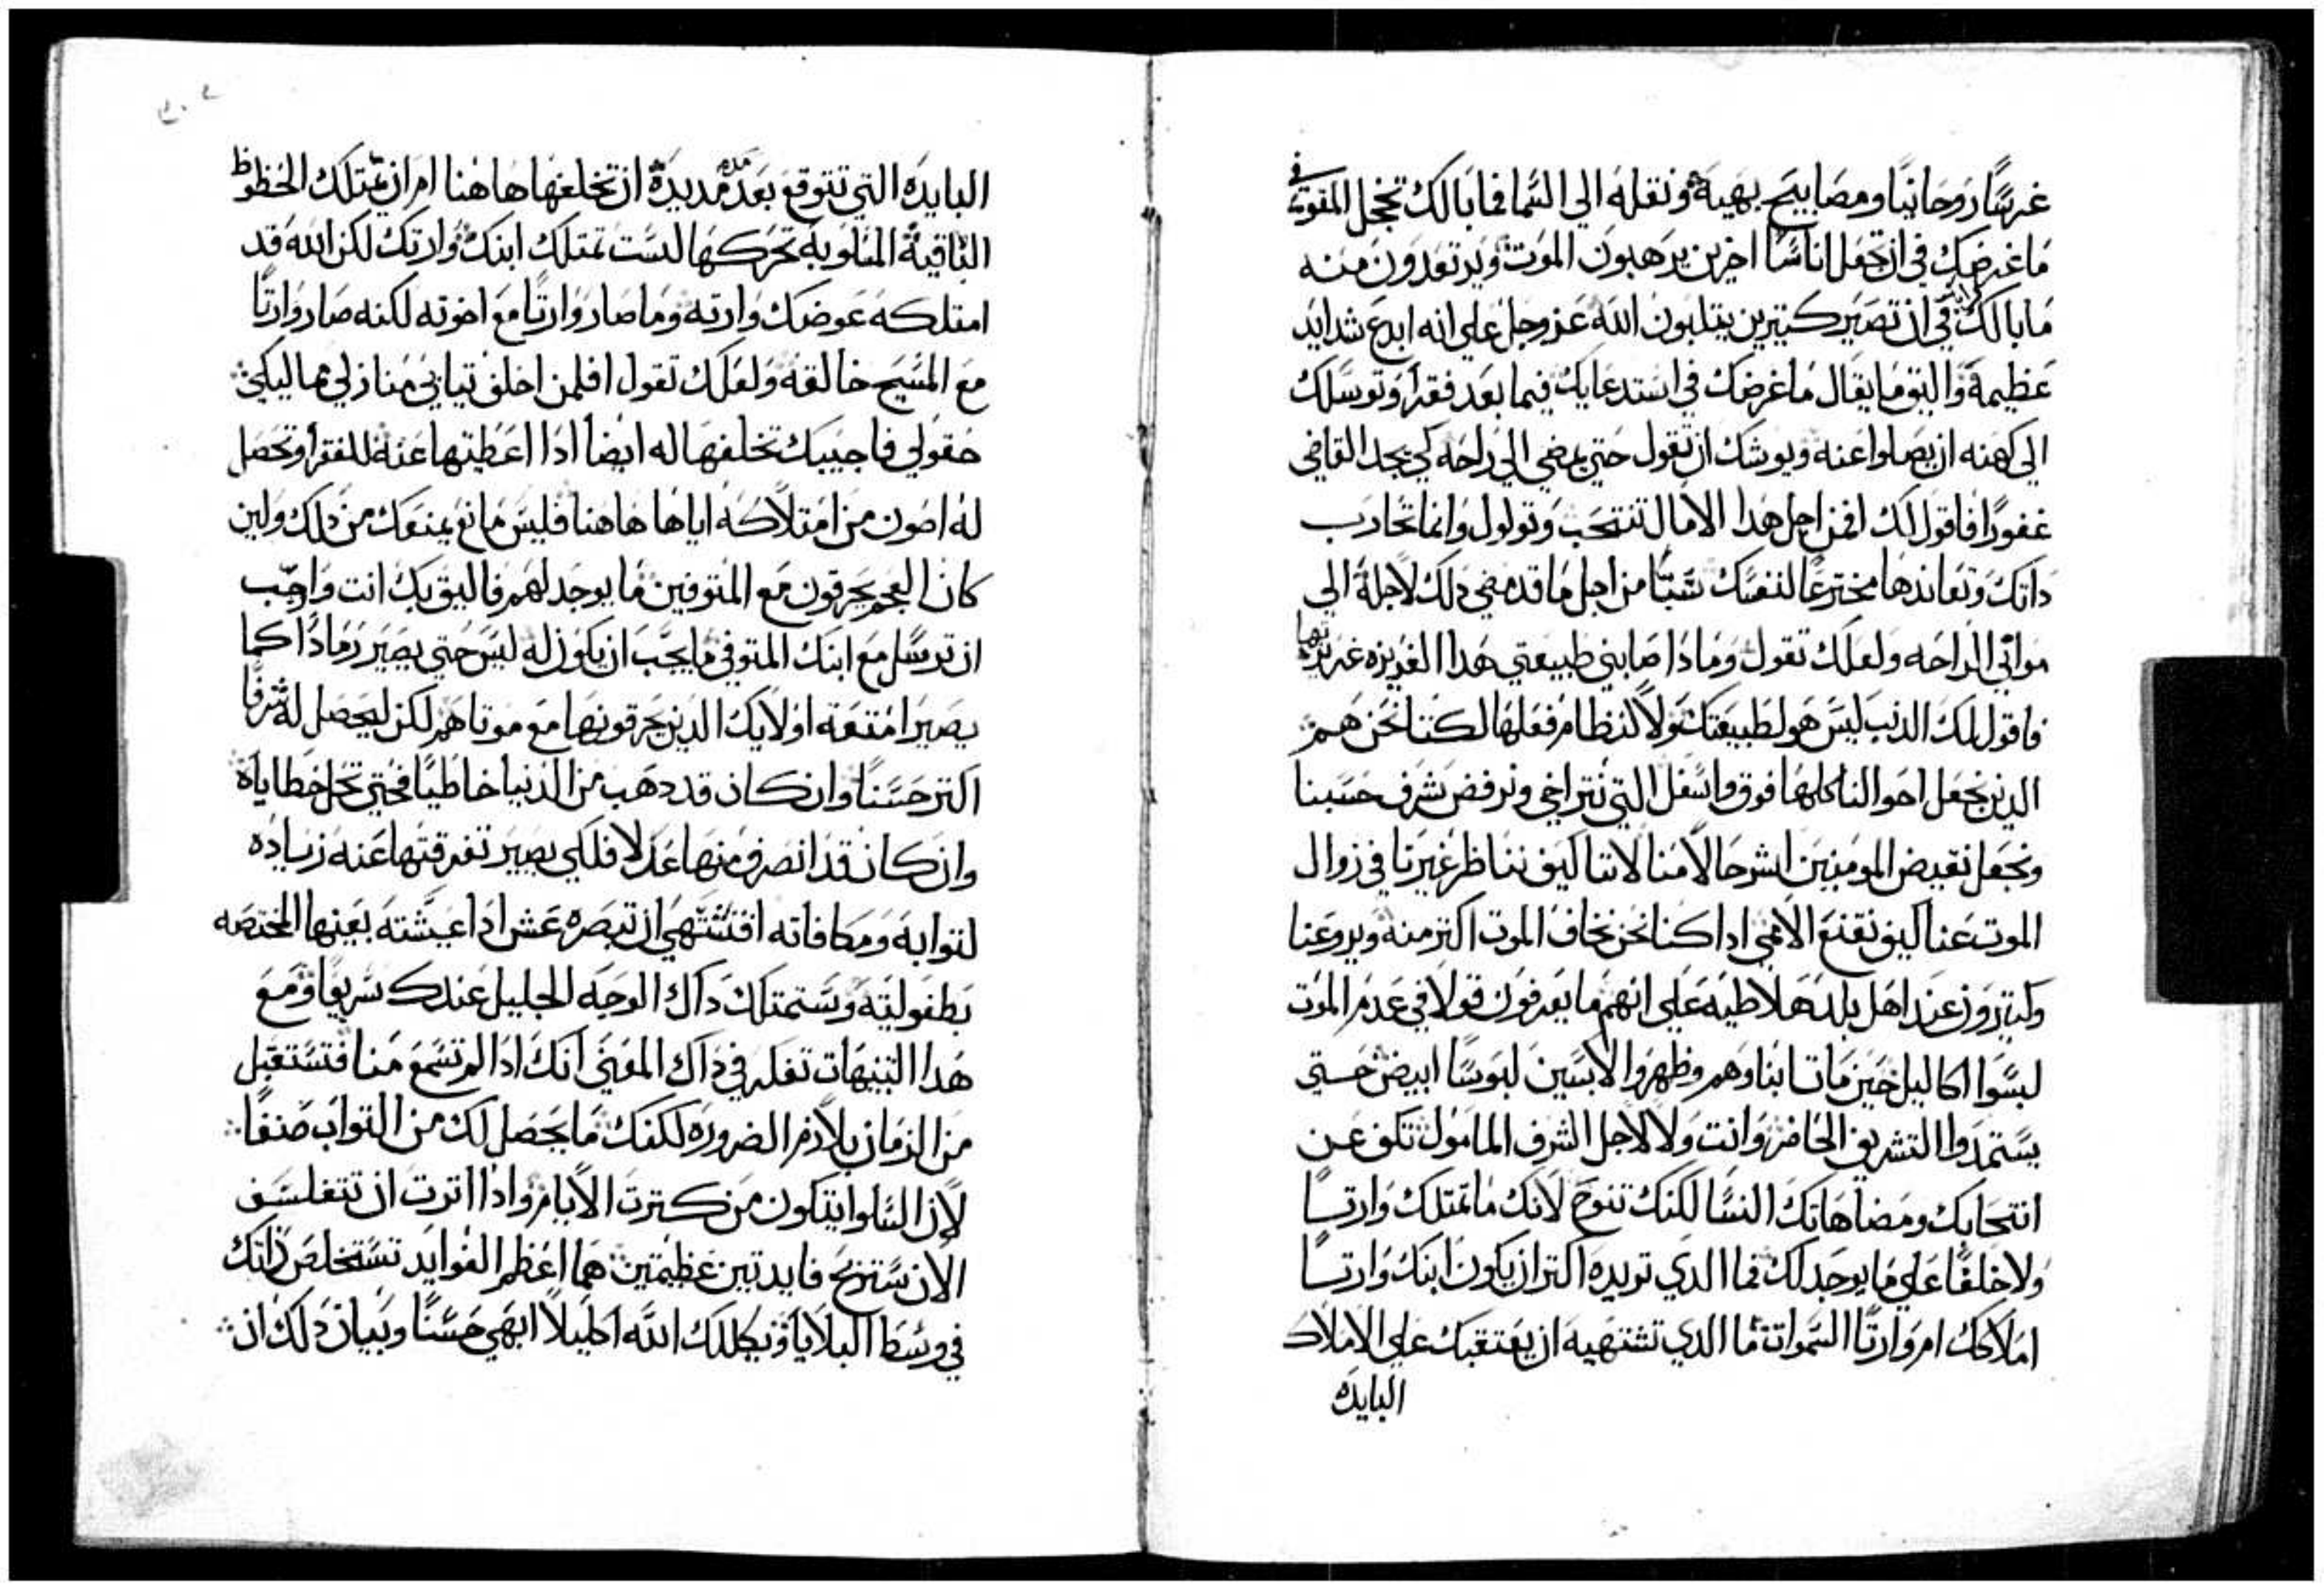 غرسًا روحانيًا ومصابيح بهية ونقله الي السما فما بالك تخجل المتوفي
ما غرضك في ان تجعل اناسًا اخرين يرهبون الموت ويرتعدون منه
ما بالك في ان تصير كتيرين يتلبون الله عز وجل علي انه ابدع شدايد
عظيمة واليق ما يقال ما غرضك في استدعايك فيما بعد فقرا وتوسلك
الي كهنه ان يصلوا عنه ويوشك ان تقول حتي يمضي الي راحه كي يجد القاضي
غفورًا فاقول لك افمن اجل هدا الامال تنتحب وتولول وانما تحارب
داتك وتعاندها مخترعًا لنفسك شتًا من اجل ما قد مضي دلك لاجله الي
مواني الراحه ولعلك تقول ومادا اصابني طبيعتي هدا الغريزه غريزتها
فاقول لك الدنب ليس هو لطبيعتك ولا لنظام فعلها لكننا نحن هم
الدين نجعل احوالنا كلها فوق واسفل التي نتراخي ونرفض شرف حسبنا
ونجعل نقيض المومنين اشر حالًا منا لاننا كيف نناظر غيرنا في زوال
الموت عنا كيف نقنع الاممي ادا كنا نحن نخاف الموت اكتر منه ويروعنا
وكتيرون عند اهل بلده لاطيه علي انهم ما يعرفون قولًا في عدم الموت
لبسوا اكاليل حين مات ابناوهم وظهروا لابسين لبوسًا ابيض حتي
يستمدوا التشريف الحاضر وانت ولا لاجل الشرف المامول تكف عن
انتحابك ومضاهاتك النسا لكنك تنوح لانك ما تمتلك وارتًا
ولا خلفًا علي ما يوجد لك فما الدي تريده اكتر ان يكون ابنك وارتًا
املاكك ام وارتًا السموات ما الدي تشتهيه ان يعتقبك علي الاملاك
البايده
البايده التي تتوقع بعد مده مديدة ان تخلفها هاهنا ام ان يمتلك الحظوظ
الباقية المناوبه تحركها لست تمتلك ابنك وارتك لكن الله قد
امتلكه عوضك وارته وما صار وارتًا مع اخوته لكنه صار وارتًا
مع المسيح خالقه ولعلك تقول افلمن اخلف تيابي منازلي مماليكي
حقولي فاجيبك تخلفها له ايضا ادا اعطيتها عنه للفقرا وتحصل
له اصون من امتلاكه اياها هاهنا فليس مانع يمنعك من دلك ولين
كان العجم يحرقون مع المتوفين ما يوجد لهم فاليق بك انت واجب
ان ترسل مع ابنك المتوفي ما يجب ان يكون له ليس حتي يصير رمادًا كما
يصير امتعة اولايك الدين يحرقونها مع موتاهم لكن ليحصل له شرفًا
اكتر حسنًا وان كان قد دهب من الدنيا خاطيًا فحتي تحل خطاياه
وان كان قد انصرف منها عدلا فلكي يصير تفرقتها عنه زياده
لتوابه ومكافاته افتشتهي ان تبصره عش ادا عيشته بعينها المختصه
بطفوليته وستمتلك داك الوجه الجليل عندك سريعًا ومع
هدا التنبيهات تفكر في داك المعني انك ادا لم تسمع منا فتستقبل
من الزمان بلازم الضروره لكنك ما يحصل لك من التواب صنفًا
لان السلوا يتكون من كترت الايام وادا اترت ان تتفلسف
الان ستربح فايدتين عظيمتين هما اعظم الفوايد تستخلص داتك
في وسط البلايا ويكللك الله اكليلًا ابهي حسنًا وبيان دلك ان